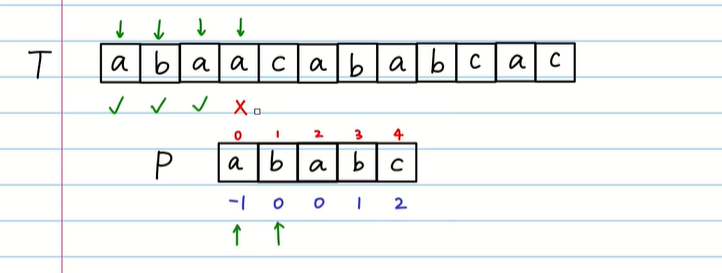 ↓ ↓ ↓ ↓
T a b a a c a b a b c a c
✓ ✓ ✓ x
0 1 2 3 4
P a b a b c
-1 0 0 1 2
↑ ↑